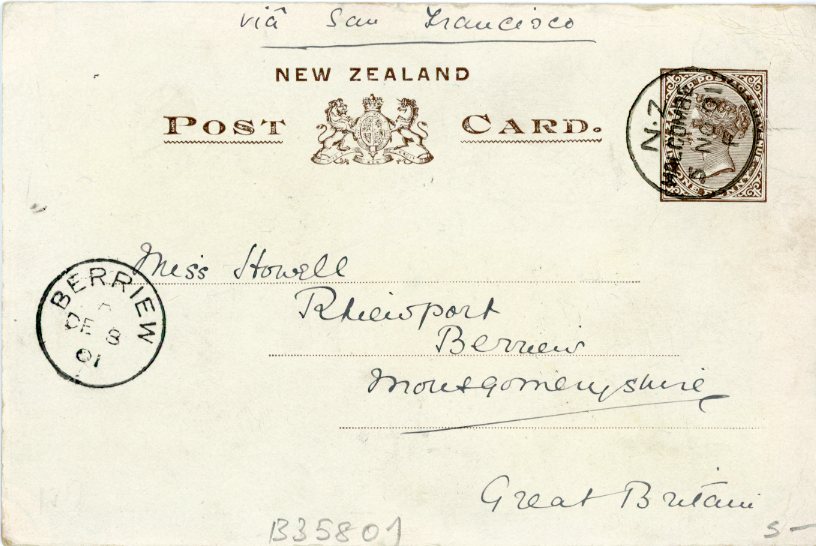 viâ San Francisco
NEW ZEALAND
POST CARD.
N.Z
HALCOMBE
5 NO 01
F
ONE PENNY
BERRIEW
DE 8
01
Miss Howell
Rhiewport
Berriew
Montgomeryshire
Great Britain
B35801
5-